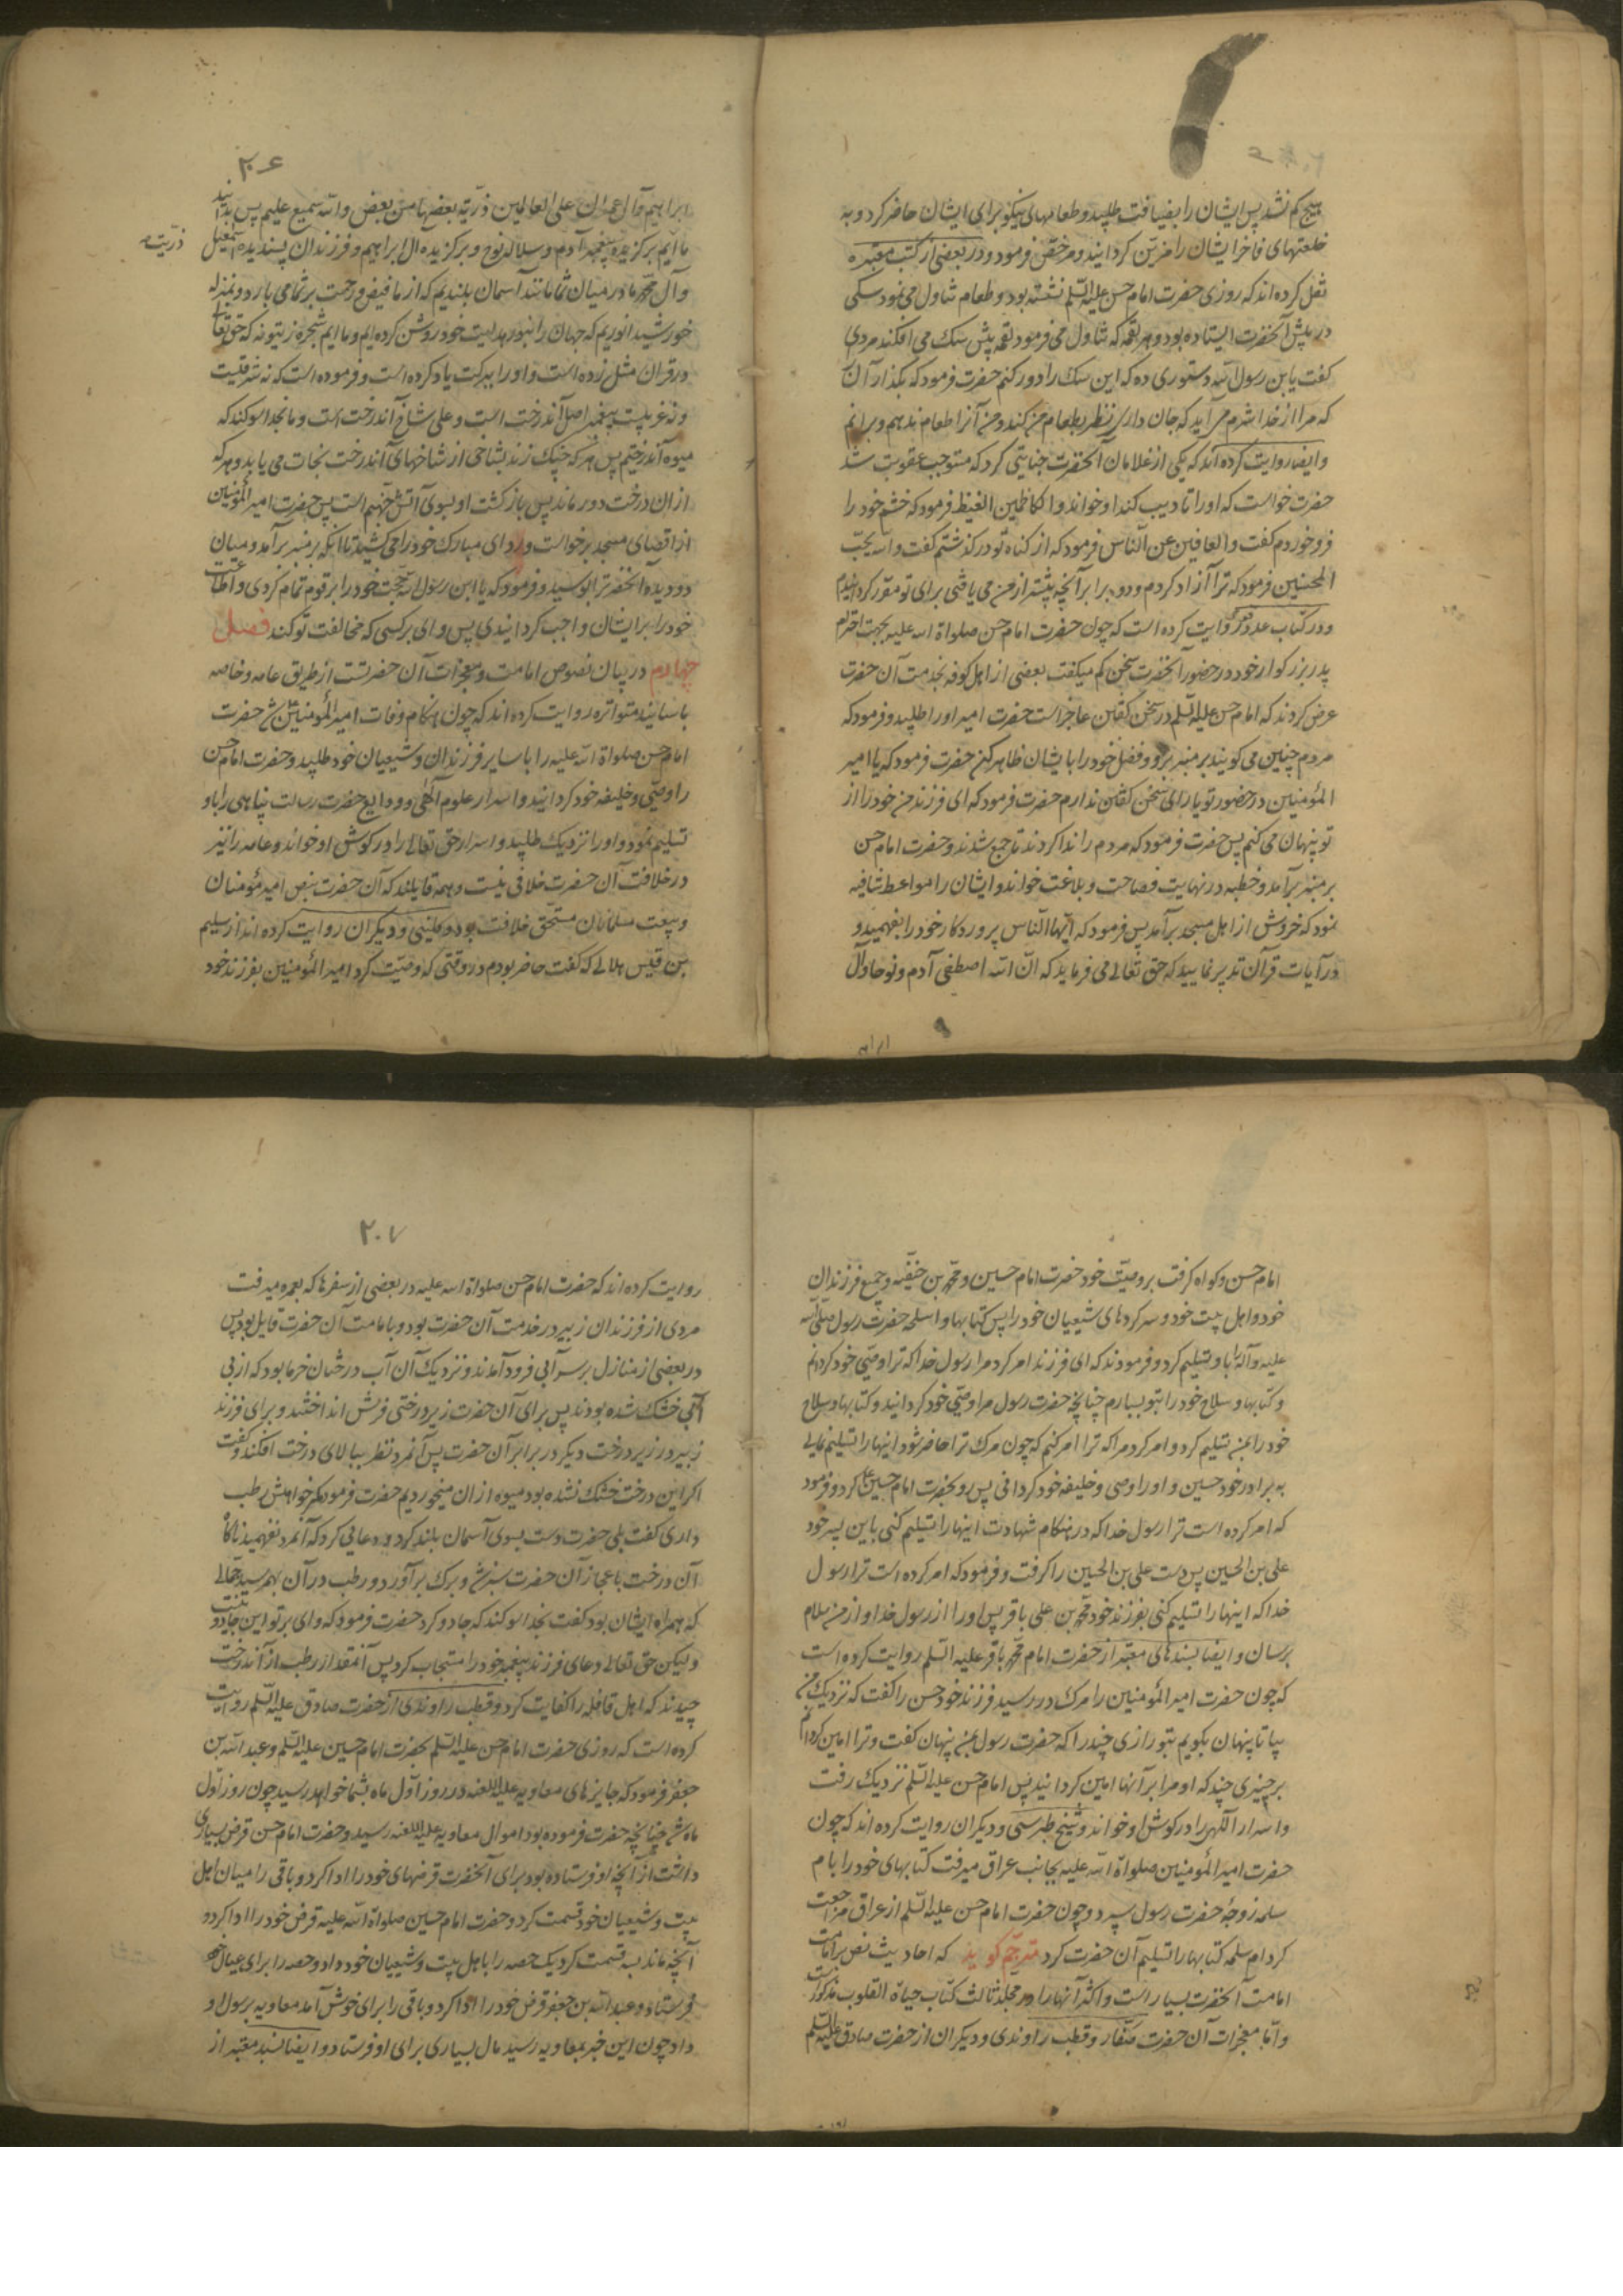 هیچ کم نشد پس ایشان را بضیافت طلبید و طعامهای نیکو برای ایشان حاضر کرد و به
خلعتهای فاخر ایشان را مزین کردانید و مرخص فرمود و در بعضی از کتب معتبره
نقل کرده‌اند که روزی حضرت امام حسن علیه السلم نشسته بود و طعام تناول می نمود سکی
در پیش آنحضرت ایستاده بود و هر لقمه که تناول می فرمود لقمه پیش سک می افکند مردی
کفت یابن رسول الله دستوری ده که این سک را دور کنم حضرت فرمود که بکذار آن
که مرا از خدا شرم می آید که جان داری نظر بطعام من کند و من آنرا طعام ندهم و برانم
و ایضا روایت کرده‌اند که یکی از غلامان آنحضرت جنایتی کرد که مستوجب عقوبت شد
حضرت خواست که او را تادیب کند او خواند و الکاظمین الغیظ فرمود که خشم خود را
فرو خوردم کفت و العافین عن الناس فرمود که از کناه تو در کذشتم کفت و الله یحب
المحسنین فرمود که ترا آزاد کردم و دو برابر آنچه پیشتر از من می یافتی برای تو مقرر کردانیدم
و در کتاب عدد روایت کرده است که چون حضرت امام حسن صلواة الله علیه بجهت احترام
پدر بزرکوار خود در حضور آنحضرت سخن کم میکفت بعضی از اهل کوفه بخدمت آن حضرت
عرض کردند که امام حسن علیه السلم در سخن کفتن عاجز است حضرت امیر او را طلبید و فرمود که
مردم چنین می کویند بر منبر برو و فضل خود را بایشان ظاهر کن حضرت فرمود که یا امیر
المؤمنین در حضور تو یارای سخن کفتن ندارم حضرت فرمود که ای فرزند من خود را از
تو پنهان می کنم پس حضرت فرمود که مردم را ندا کردند تا جمع شدند و حضرت امام حسن
بر منبر بر آمد و خطبه در نهایت فصاحت و بلاغت خواند و ایشان را مواعظ شافیه
نمود که خروش از اهل مسجد بر آمد پس فرمود که ایها الناس پروردکار خود را بفهمید و
در آیات قرآن تدبر نمایید که حق تعالی می فرماید که ان الله اصطفی آدم و نوحا و آل
ابراهیم
۲۰۶
ابراهیم و آل عمران علی العالمین ذریة بعضها من بعض و الله سمیع علیم پس بدانید
ذریت
ماایم برکزیده پیغمبر آدم و سلاله نوح و برکزیده آل ابراهیم و فرزندان پسندیده اسمعیل
و آل محمد ما در میان شما مانند آسمان بلندیم که از ما فیض و رحمت بر شما می بارد و بمنزله
خورشید انوریم که جهان را بنور هدایت خود روشن کرده‌ایم و ماایم شجره زیتونه که حق تعالی
در قرآن مثل زده است و او را ببرکت یاد کرده است و فرموده است که نه شرقیت
و نه غربیت پیغمبر اصل آندرخت است و علی شاخ آندرخت است و ما بخدا سوکند که
میوه آندرختیم پس هر که چنک زند بشاخی از شاخهای آندرخت نجات می یابد و هر که
از ان درخت دور ماند پس بازکشت او بسوی آتش جهنم است پس حضرت امیر المؤمنین
از اقصای مسجد برخواست و ردای مبارک خود را می کشید تا آنکه بر منبر بر آمد و میان
دو دیده آنحضرت را بوسید و فرمود که یا ابن رسول الله حجت خود را بر قوم تمام کردی و اطاعت
خود را بر ایشان واجب کردانیدی پس وای بر کسی که مخالفت تو کند فصل
چهارم در بیان نصوص امامت و معجزات آن حضرتست از طریق عامه و خاصه
باسانید متواتره روایت کرده‌اند که چون هنکام وفات امیر المؤمنین شد حضرت
امام حسن صلواة الله علیه را با سایر فرزندان و شیعیان خود طلبید و حضرت امام حسن
را وصی و خلیفه خود کردانید و اسرار علوم الهی و ودایع حضرت رسالت پناهی را باو
تسلیم نمود و او را نزدیک طلبید و اسرار حق تعالی را در کوش او خواند و عامه را نیز
در خلافت آن حضرت خلافی نیست و همه قایلند که آن حضرت بنص امیر مؤمنان
و بیعت مسلمانان مستحق خلافت بود و کلینی و دیکران روایت کرده‌اند از سلیم
بن قیس هلالی که کفت حاضر بودم در وقتی که وصیت کرد امیر المؤمنین بفرزند خود
امام حسن و کواه کرفت بر وصیت خود حضرت امام حسین و محمد بن حنفیه و جمیع فرزندان
خود و اهل بیت خود و سرکردهای شیعیان خود را پس کتابها و اسلحه حضرت رسول صلی الله
علیه و آله را باو تسلیم کرد و فرمودند که ای فرزند امر کرد مرا رسول خدا که ترا وصی خود کردانم
و کتابها و سلاح خود را بتو بسپارم چنانچه حضرت رسول مرا وصی خود کردانید و کتابها و سلاح
خود را بمن تسلیم کرد و امر کرد مرا که ترا امر کنم که چون مرک ترا حاضر شود اینها را تسلیم نمایی
به برادر خود حسین و او را وصی و خلیفه خود کردانی پس رو بحضرت امام حسین کرد و فرمود
که امر کرده است ترا رسول خدا که در هنکام شهادت اینها را تسلیم کنی باین پسر خود
علی بن الحسین پس دست علی بن الحسین را کرفت و فرمود که امر کرده است ترا رسول
خدا که اینها را تسلیم کنی بفرزند خود محمد بن علی باقر پس او را از رسول خدا و از من سلام
برسان و ایضا بسندهای معتبر از حضرت امام محمد باقر علیه السلم روایت کرده است
که چون حضرت امیر المؤمنین را مرک در رسید فرزند خود حسن را کفت که نزدیک من
بیا تا پنهان بکویم بتو رازی چند را که حضرت رسول بمن پنهان کفت و ترا امین کردانم
بر چیزی چند که او مرا بر آنها امین کردانید پس امام حسن علیه السلم نزدیک رفت
و اسرار الهی را در کوش او خواند و شیخ طبرسی و دیکران روایت کرده‌اند که چون
حضرت امیر المؤمنین صلواة الله علیه بجانب عراق میرفت کتابهای خود را بام
سلمه زوجه حضرت رسول سپرد و چون حضرت امام حسن علیه السلم از عراق مراجعت
کرد ام سلمه کتابها را تسلیم آن حضرت کرد مترجم کوید که احادیث نص بر امامت
امامت آنحضرت بسیار است و اکثر آنها را در مجلد ثالث کتاب حیاة القلوب مذکور است
و اما معجزات آن حضرت صفار و قطب راوندی و دیکران از حضرت صادق علیه السلم
۲۰۷
روایت کرده‌اند که حضرت امام حسن صلواة الله علیه در بعضی از سفرها که بعمره میرفت
مردی از فرزندان زبیر در خدمت آن حضرت بود و بامامت آن حضرت قایل بود پس
در بعضی از منازل بر سر آبی فرود آمدند و نزدیک آن آب درختان خرما بود که از بی
آبی خشک شده بودند پس برای آن حضرت زیر درختی فرش انداختند و برای فرزند
زبیر در زیر درخت دیکر در برابر آن حضرت پس آنمرد نظر ببالای درخت افکند و کفت
اکر این درخت خشک نشده بود میوه از ان میخوردیم حضرت فرمود مکر خواهش رطب
داری کفت بلی حضرت دست بسوی آسمان بلند کرد و دعایی کرد که آنمرد نفهمید ناکاه
آن درخت باعجاز آن حضرت سبز شد و برک بر آورد و رطب در آن بهم رسید جمالی
که همراه ایشان بود کفت بخدا سوکند که جادو کرد حضرت فرمود که وای بر تو این جادو نیست
ولیکن حق تعالی دعای فرزند پیغمبر خود را مستجاب کرد پس آنمقدار رطب از آندرخت
چیدند که اهل قافله را کفایت کرد و قطب راوندی از حضرت صادق علیه السلم روایت
کرده است که روزی حضرت امام حسن علیه السلم بحضرت امام حسین علیه السلم و عبد الله بن
جعفر فرمود که جایزهای معاویه علیه اللعنه در روز اول ماه بشما خواهد رسید چون روز اول
ماه شد چنانچه حضرت فرموده بود اموال معاویه علیه اللعنه رسید و حضرت امام حسن قرض بسیاری
داشت از آنچه او فرستاده بود برای آنحضرت قرضهای خود را ادا کرد و باقی را میان اهل
بیت و شیعیان خود قسمت کرد و حضرت امام حسین صلواة الله علیه قرض خود را ادا کرد و
آنچه ماند بسه قسمت کرد یک حصه را باهل بیت و شیعیان خود داد و دو حصه را برای عیال خود
فرستاد و عبد الله بن جعفر قرض خود را ادا کرد و باقی را برای خوش آمد معاویه برسول او
داد چون این خبر بمعاویه رسید مال بسیاری برای او فرستاد و ایضا بسند معتبر از